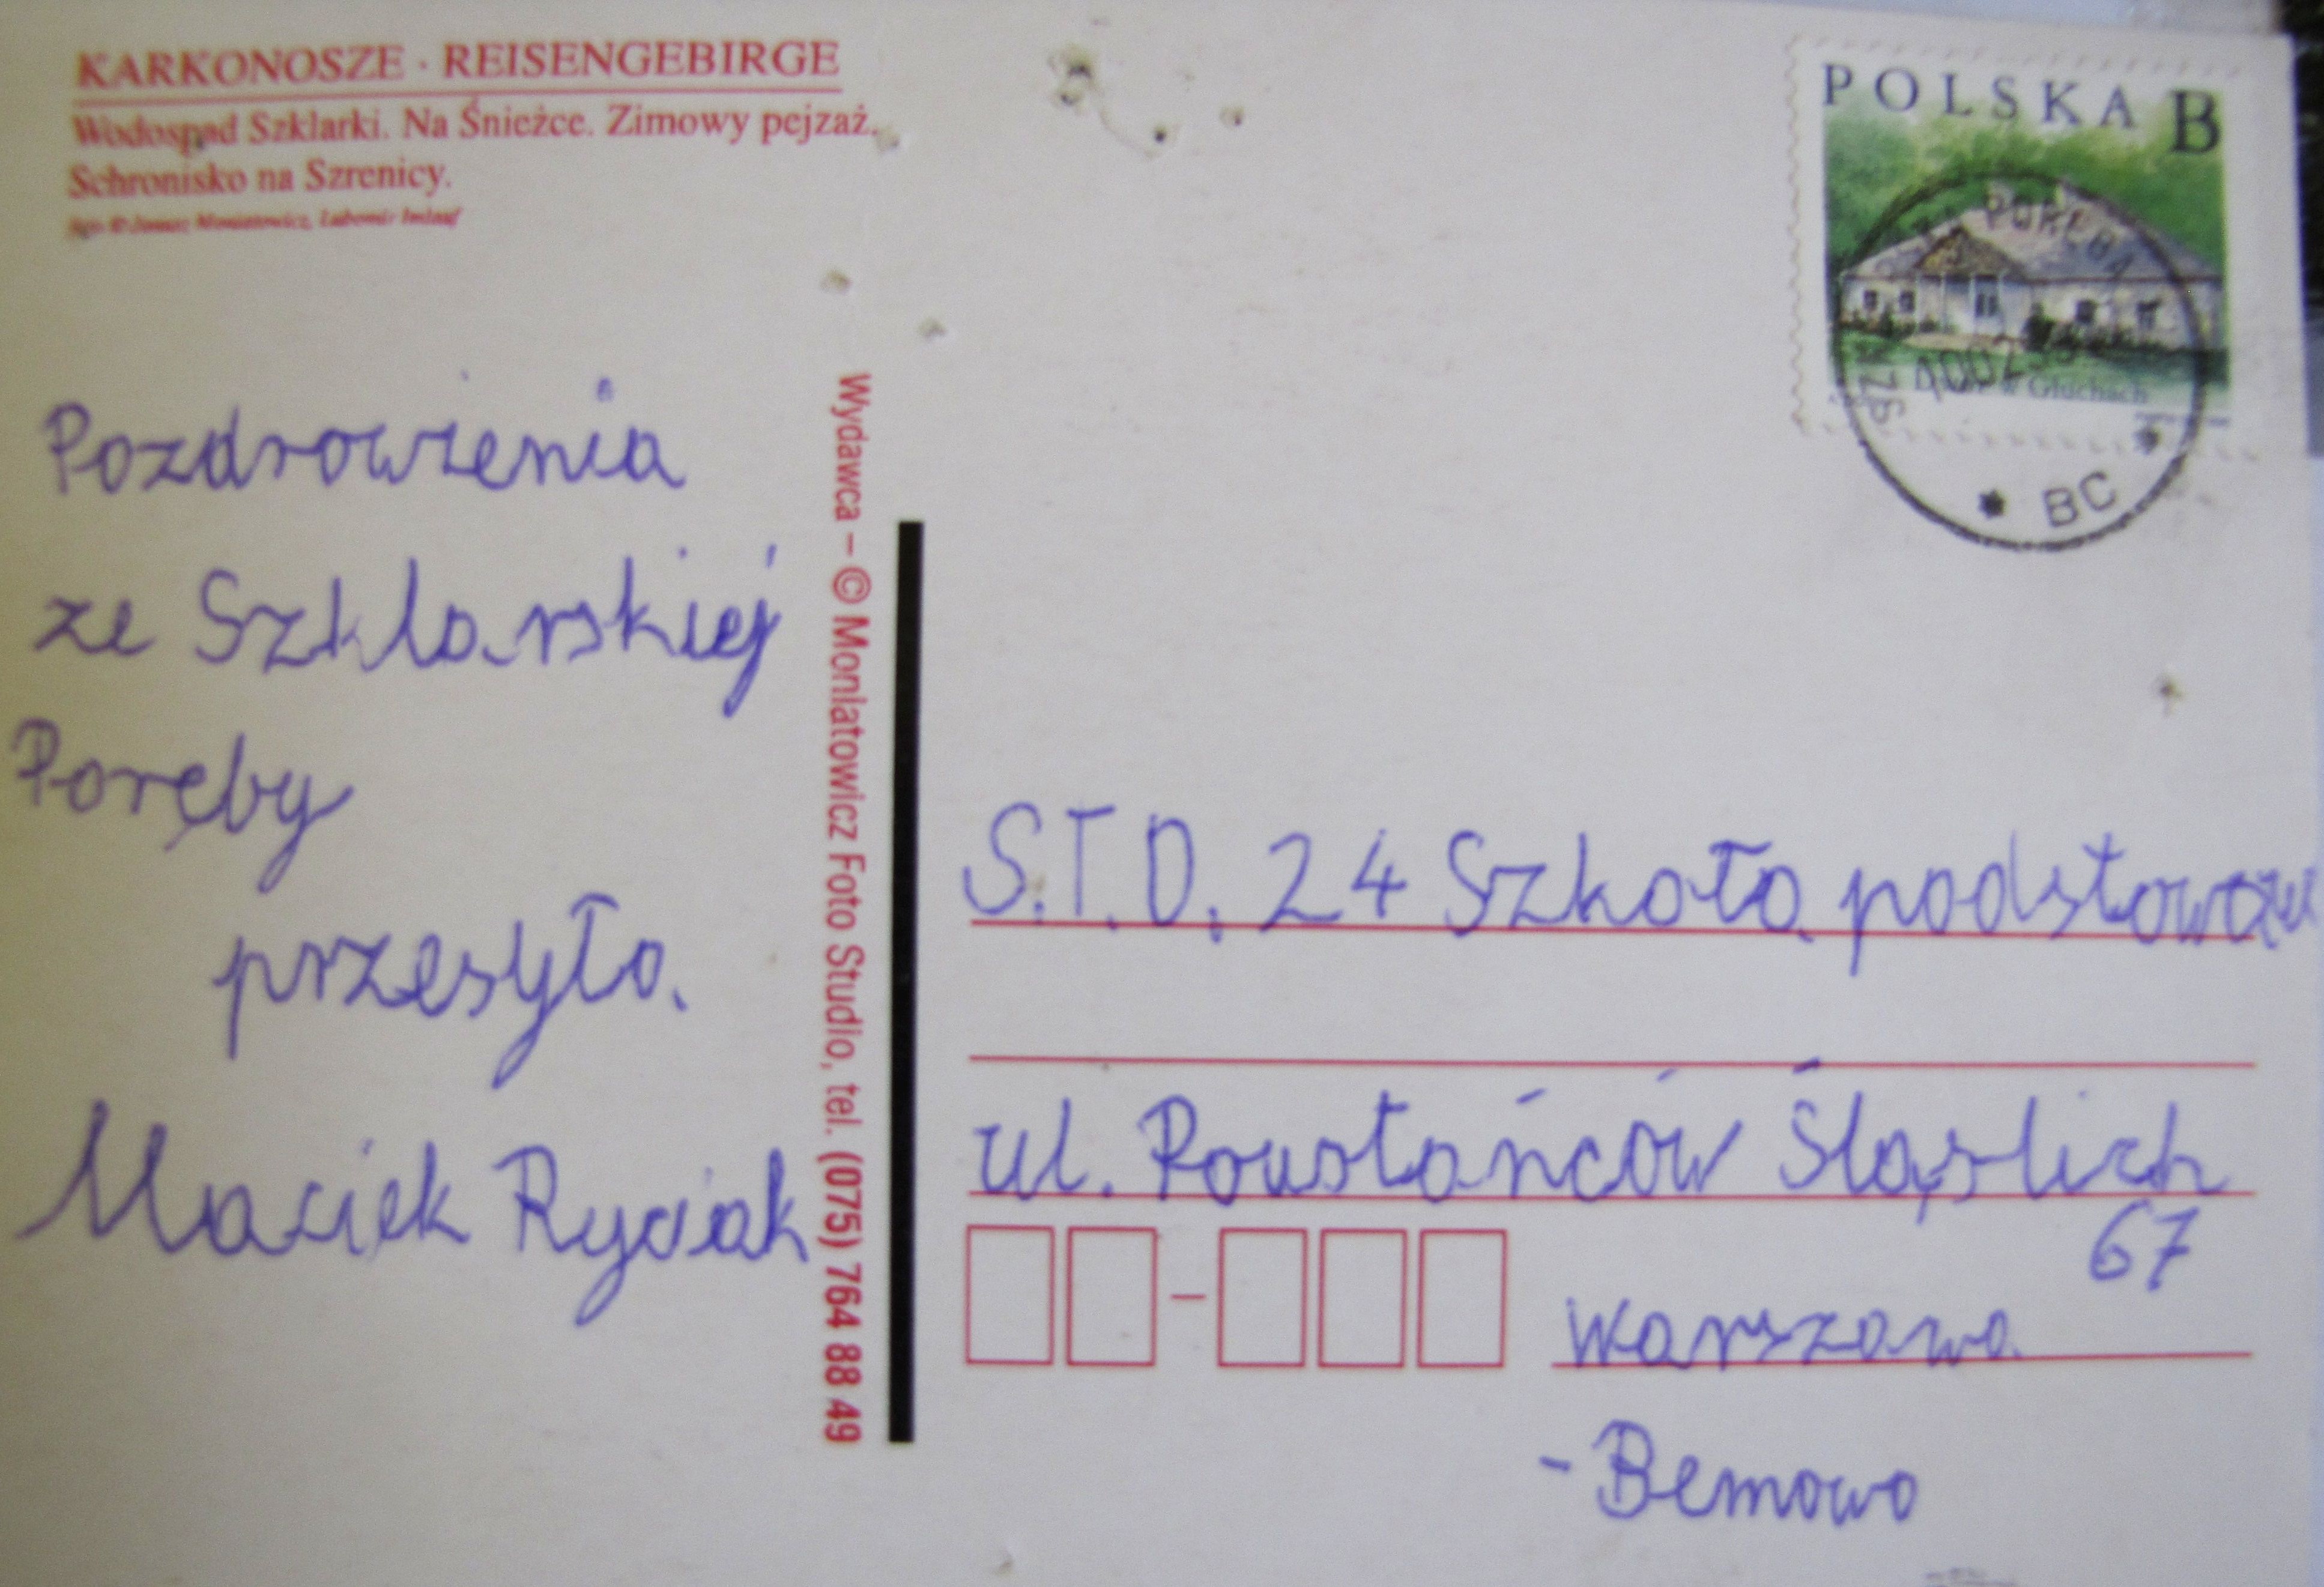 KARKONOSZE · REISENGEBIRGE
Wodospad Szklarki. Na Śnieżce. Zimowy pejzaż.
Schronisko na Szrenicy.
Pozdrowienia
ze Szklarskiej
Poręby
przesyła
Maciek Ryciak
Wydawca – © Moniatowicz Foto Studio, tel. (075) 764 88 49
POLSKA B
PORĘBA
w Głuchach
BC
S.T.D. 24 Szkoła
ul. Powstańców Śląslich
67
Warszawa
- Bemowo